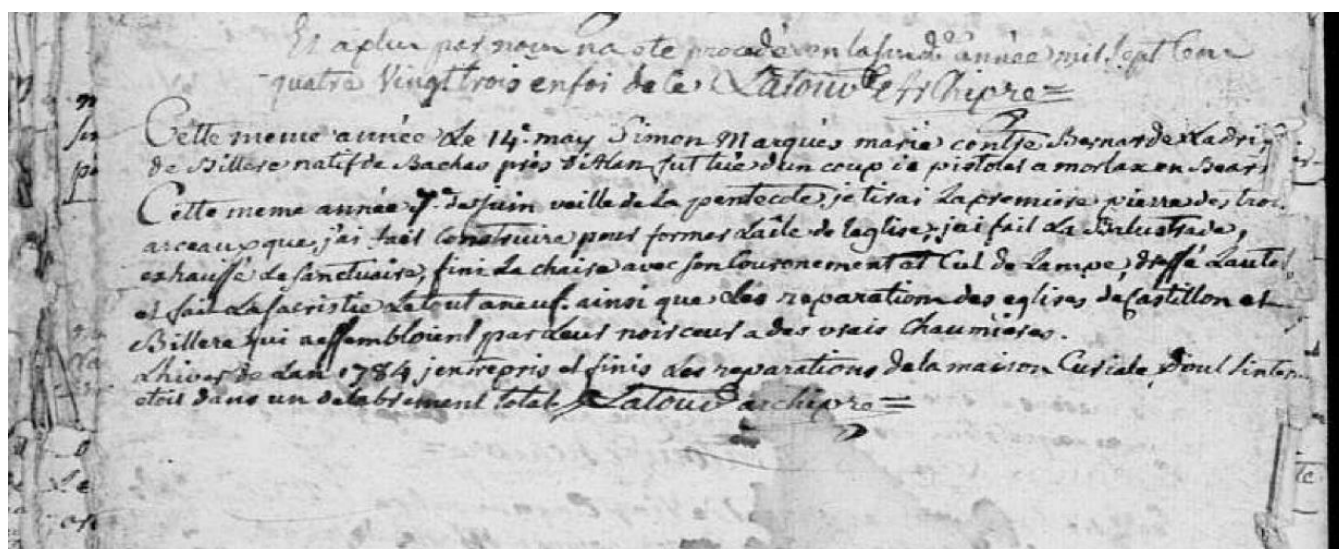 Et a plus par nous na ete procedé en la susd. année mil sept Cen
quatre Vingt trois en foi de ce Latour archipre=
Cette meme année Le 14e. may Simon Marqués marié contre Bernarde Ladri
de Billere natif de Bachas près d'Alan, fut tué d'un coup de pistolet a morlax en Bear
Cette meme année 7e. de Juin veille de La pentecote, je tirai La premiere pierre des troi
arceaux que j'ai fait Construire pour former L'aîle de l'eglise; j'ai fait La Balustrade,
exhaussé Le sanctuaire, fini La chaire avec son Couronement et Cul de Lampe, dressé L'autel
et fait La sacristie Le tout a neuf. ainsi que Les reparation des eglises de Castillon et
Billere qui ressembloient par Leur noirceur a des vrais Chaumieres.
L'hiver de L'an 1784 j'entrepris et finis Les reparations de la maison Curiale, dont L'inter
etoit dans un delabrement total. Latour archipre=